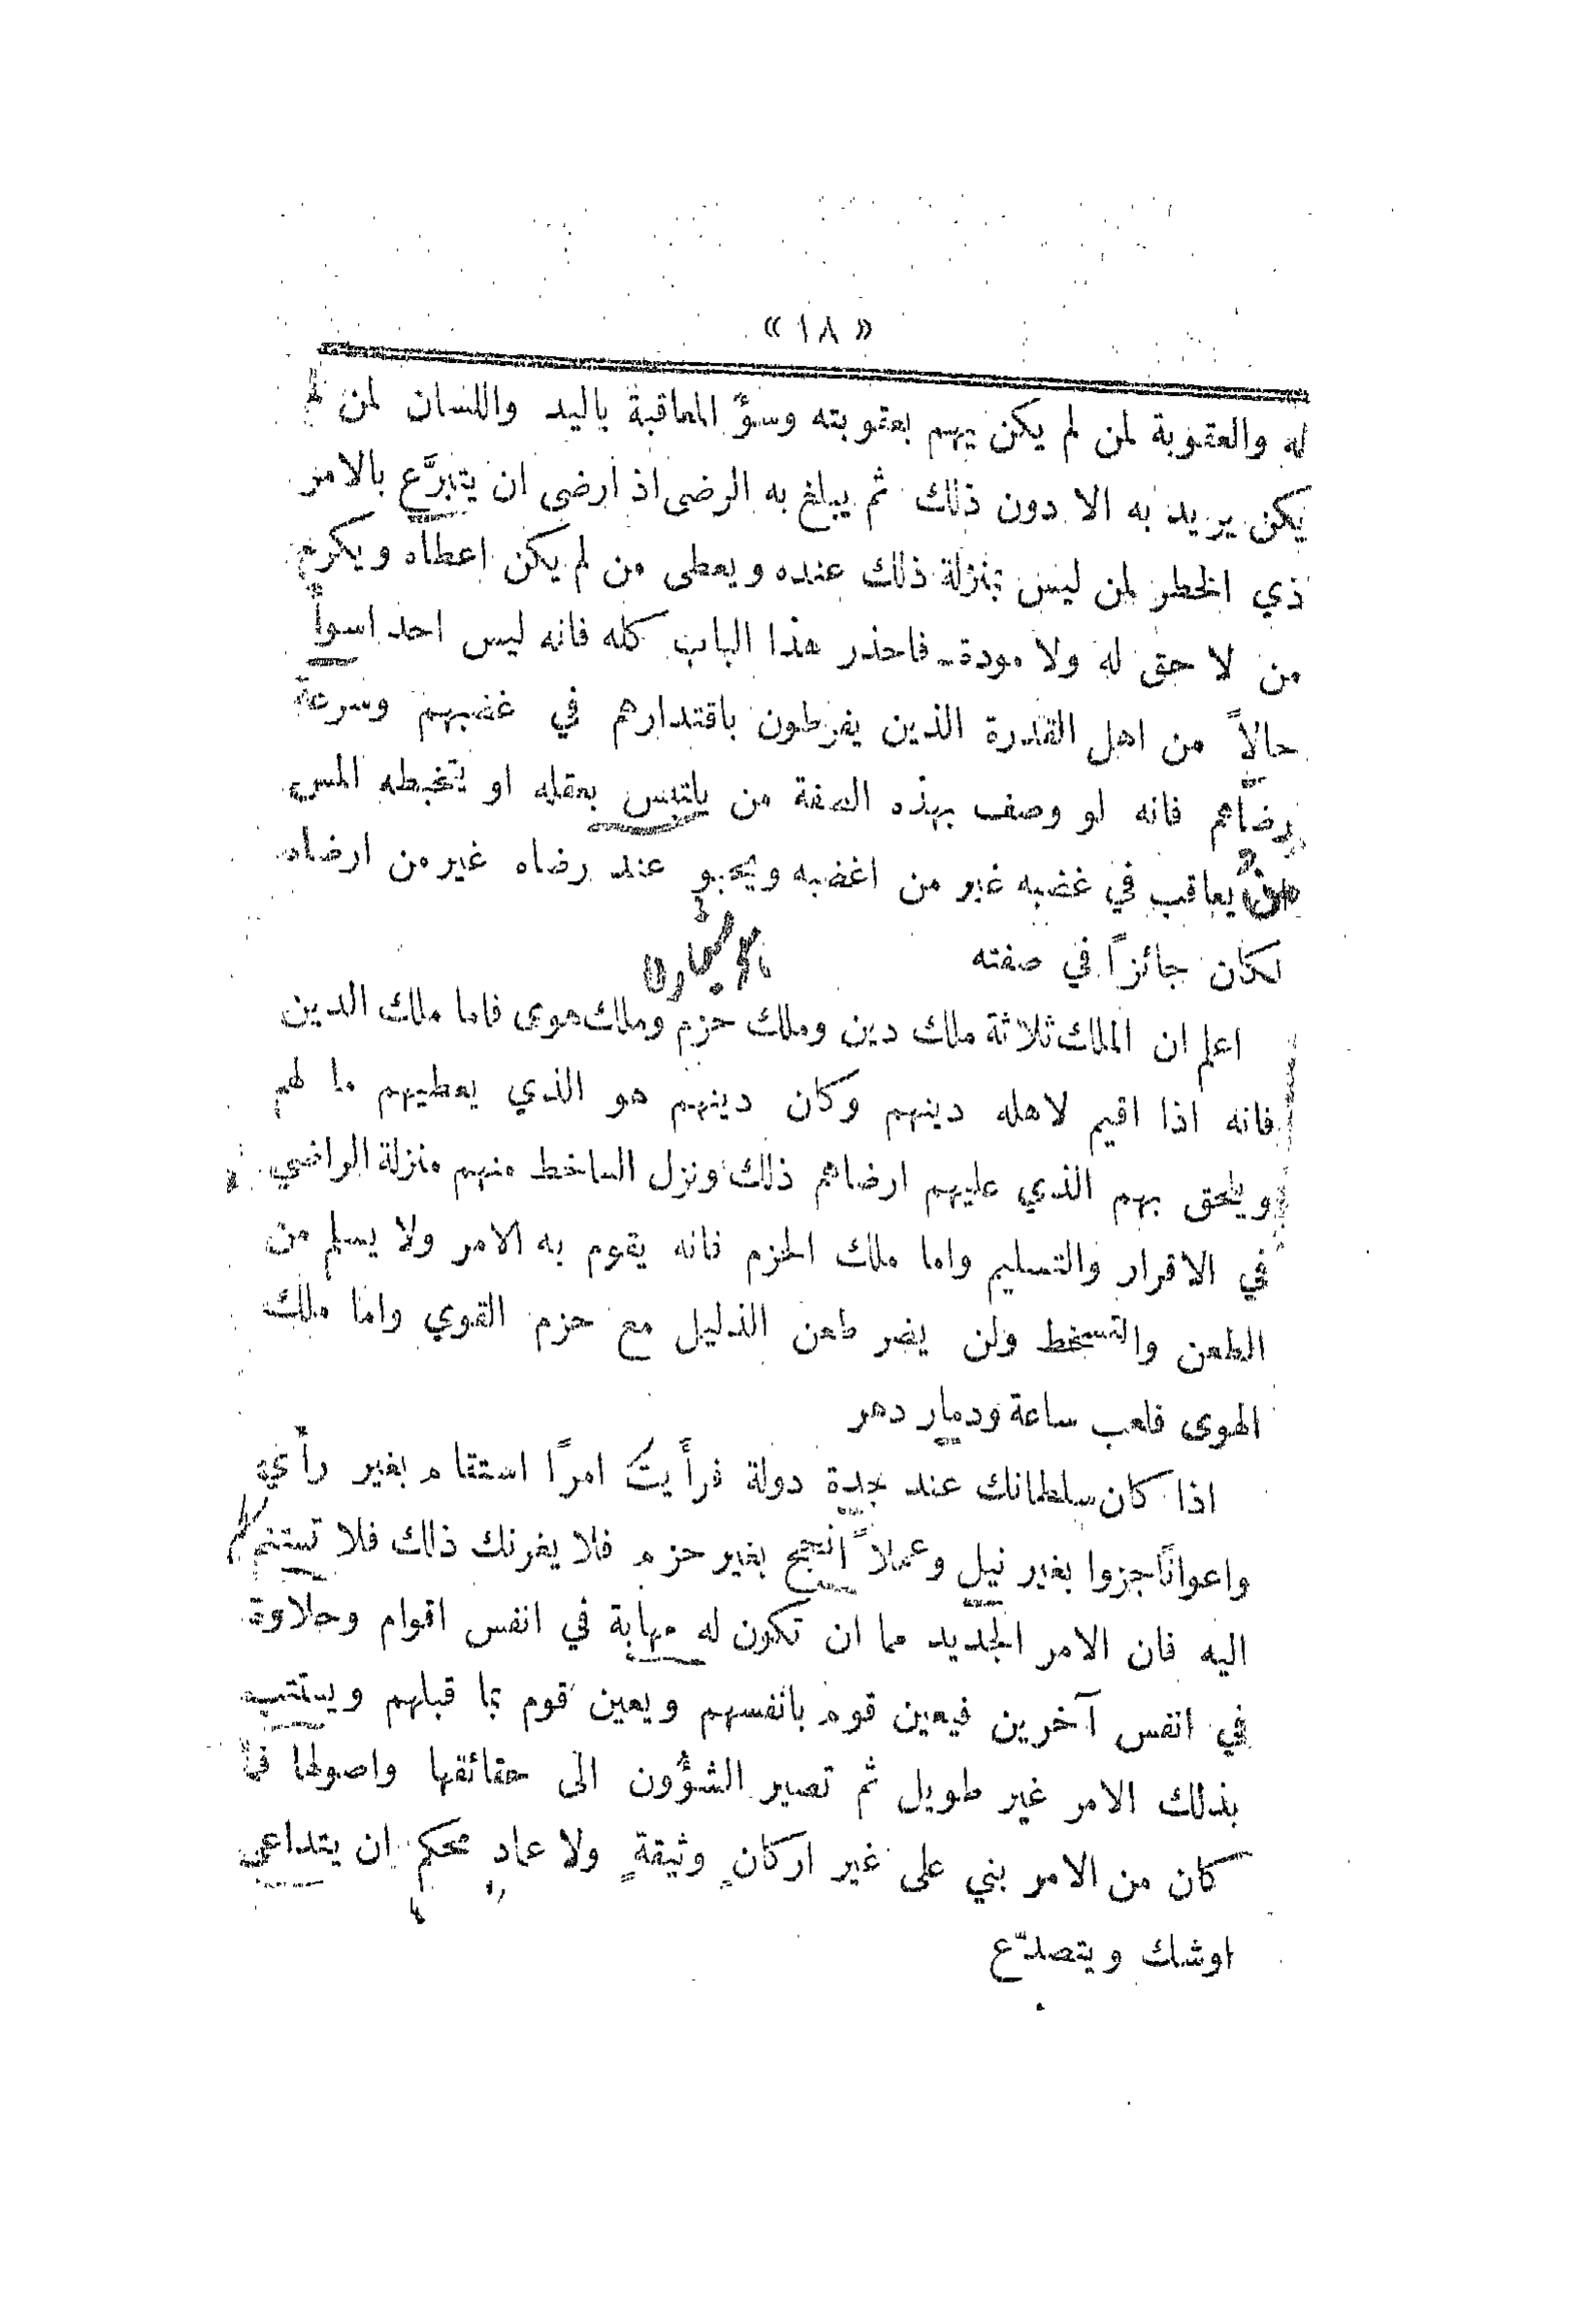 « ١٨ »
له والعقوبة لمن لم يكن يهم بعقوبته وسوُّ المعاقبة باليد واللسان لمن لم
يكن يريد به الا دون ذلك ثم يبلغ به الرضى اذ ارضى ان يتبرَّع بالامر
ذي الخطر لمن ليس بمنزلة ذلك عنده ويعطى من لم يكن اعطاه ويكرم
من لا حق له ولا مودة فاحذر هذا الباب كله فانه ليس احد اسوأ
حالاً من اهل القدرة الذين يفرطون باقتدارهم في غضبهم وسرعة
رضاهم فانه لو وصف بهذه الصفة من يلتبس بعقله او يتخبطه المس
من يعاقب في غضبه غير من اغضبه ويحبو عند رضاه غير من ارضاه
لكان جائزاً في صفته
اعلم ان الملك ثلاثة ملك دين وملك حزم وملك هوى فاما ملك الدين
فانه اذا اقيم لاهله دينهم وكان دينهم هو الذي يعطيهم ما لهم
ويلحق بهم الذي عليهم ارضاهم ذلك ونزل الساخط منهم منزلة الراضي
في الاقرار والتسليم واما ملك الحزم فانه يقوم به الامر ولا يسلم من
الطعن والتسخط ولن يضر طعن الذليل مع حزم القوي واما ملك
الهوى فلعب ساعة ودمار دهر
اذا كان سلطانك عند جدة دولة فرأيت امرًا استقام بغير رأي
واعوانًا جزوا بغير نيل وعملاً انجح بغير حزم فلا يغرنك ذلك فلا تستنم
اليه فان الامر الجديد مما ان تكون له مهابة في انفس اقوام وحلاوة
في انفس آخرين فيعين قوم بانفسهم ويعين قوم بما قبلهم ويستتب
بذلك الامر غير طويل ثم تصير الشؤون الى حقائقها واصولها فما
كان من الامر بني على غير اركانٍ وثيقةٍ ولا عمادٍ محكم ان يتداعى
اوشك ويتصدّع